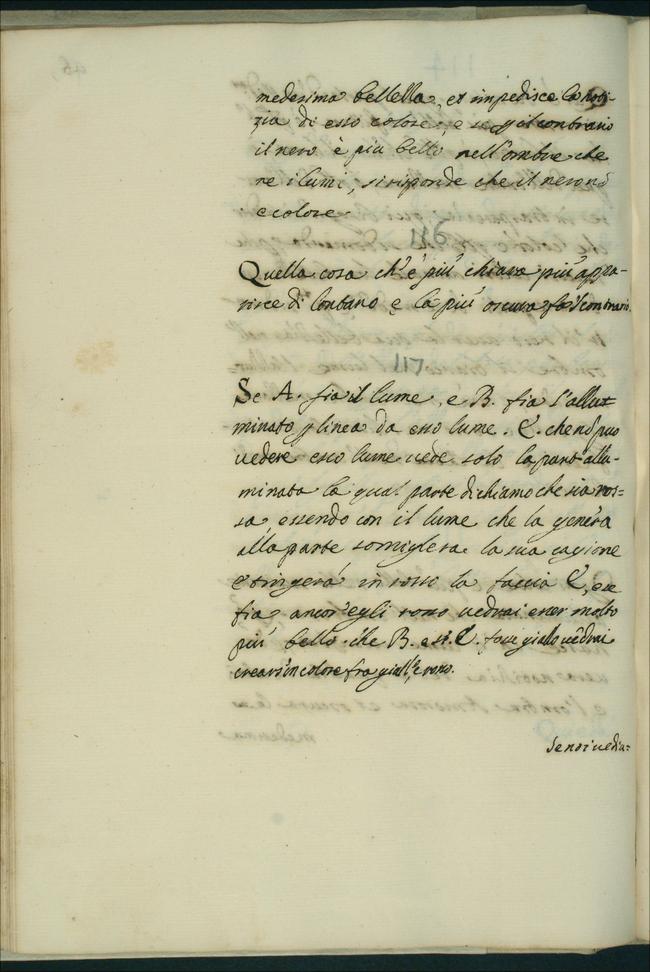 medesima bellella, et impedisce la noti-
zia di esso colore, e se p il contrario
il nero è più bello nell'ombre che
ne i lumi, si risponde che il nero nō
e colore
116
Quella cosa ch'è più chiara più appa-
risce di lontano e la più oscura fa il contrario.
117
Se A. sia il lume, e B. fia l'allu-
minato p linea da esso lume. E. che nō può
vedere esso lume vede solo la parte allu-
minata la qual parte dichiamo che sia ros=
sa, essendo con il lume che la genera
alla parte somiglera la sua cagione
e tingerà in rosso la faccia E, e se
fia ancor'egli rosso vedrai esser molto
più bello che B. e se E. fosse giallo vedrai
crearsi'n colore fra giall', e rosso.
Se noi vedia=